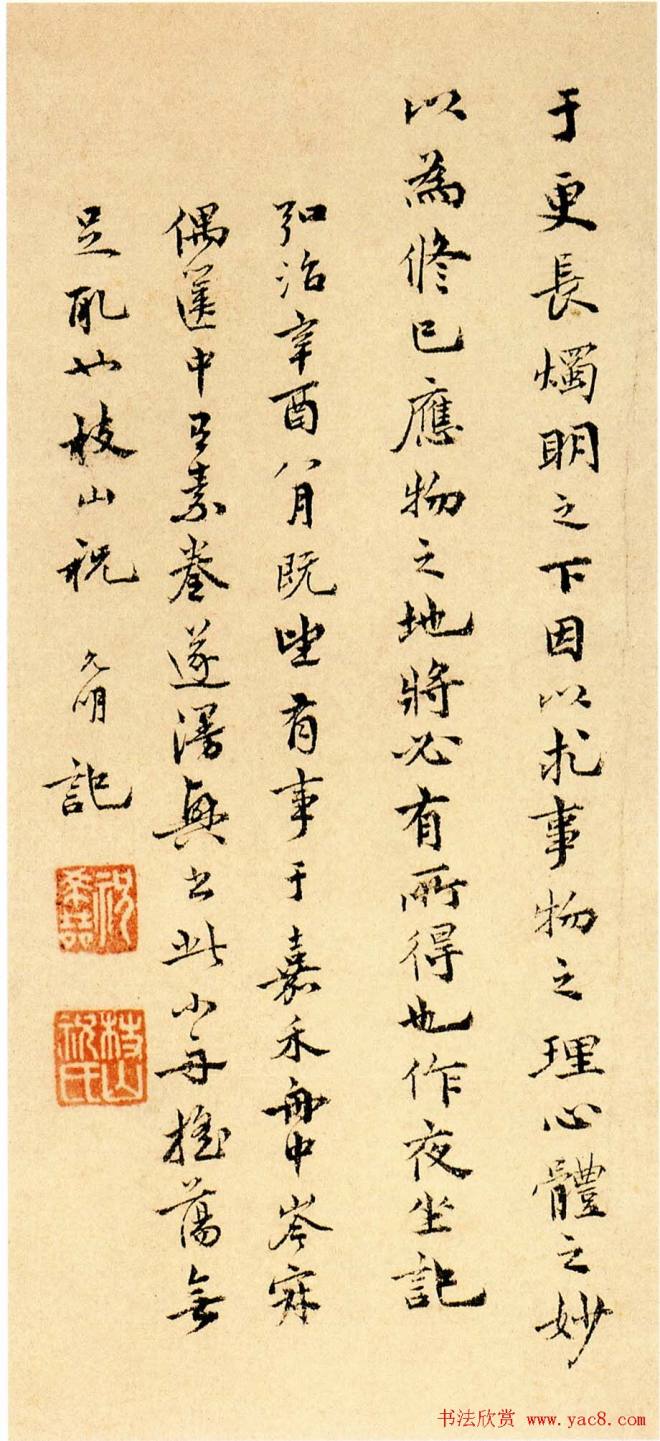 于更長燭明之下因以求事物之理心體之妙
以為修己應物之地將必有所得也作夜坐記
弘治辛酉八月既望有事于嘉禾舟中岑寂
偶篋中素卷遂漫興書此小舟搖蕩無
足取也枝山祝允明記
祝希哲
枝山祝氏
书法欣赏 www.yac8.com